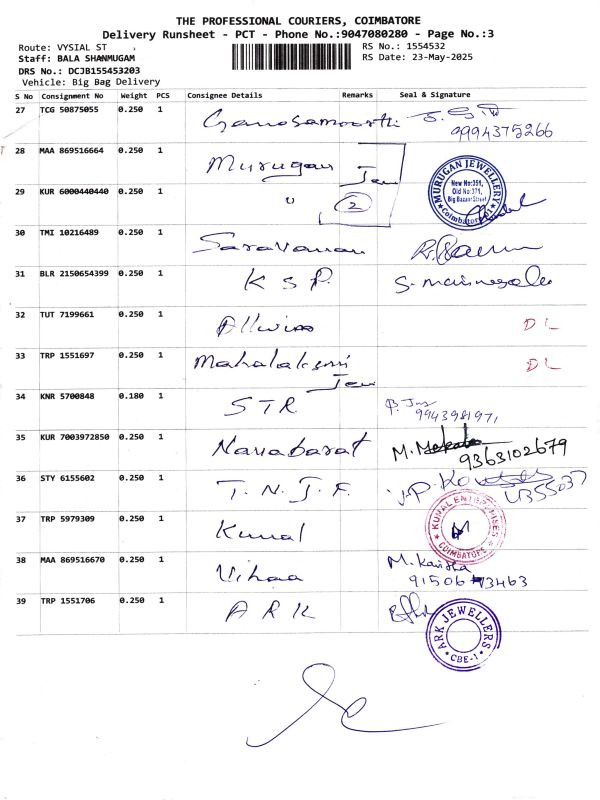 THE PROFESSIONAL COURIERS, COIMBATORE
Delivery Runsheet - PCT - Phone No.:9047080280 - Page No.:3
Route: VYSIAL ST
RS No.: 1554532
Staff: BALA SHANMUGAM
RS Date: 23-May-2025
DRS No.: DCJB155453203
Vehicle: Big Bag Delivery
S No Consignment No Weight PCS Consignee Details Remarks Seal & Signature
27 TCG 50875055 0.250 1
9994375266
28 MAA 869516664 0.250 1 Murugan Jew
MURUGAN JEWELLERY
New No:351,
Old No:371,
Big Bazaar Street
Coimbatore
29 KUR 6000440440 0.250 1 " 2
30 TMI 10216489 0.250 1 Saravanan
31 BLR 2150654399 0.250 1 K S P.
32 TUT 7199661 0.250 1 Allwins DL
33 TRP 1551697 0.250 1 Mahalaksmi DL
Jew
34 KNR 5700848 0.180 1 STR
9943981971
35 KUR 7003972850 0.250 1 Navabarat M.
9363102679
36 STY 6155602 0.250 1 T. N. J. F.
37 TRP 5979309 0.250 1 Kunal
KUNAL ENTERPRISES
COIMBATORE
38 MAA 869516670 0.250 1 Vihaa M.
91506 73463
39 TRP 1551706 0.250 1 A R K
ARK JEWELLERS
CBE-1